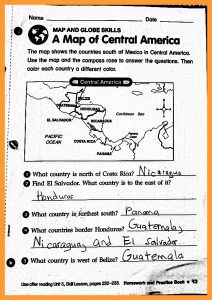 Name Date
MAP AND GLOBE SKILLS
A Map of Central America
The map shows the countries south of Mexico in Central America.
Use the map and the compass rose to answer the questions. Then
color each country a different color.
Central America
BELIZE
GUATEMALA
HONDURAS
Caribbean Sea
EL SALVADOR
NICARAGUA
PACIFIC
OCEAN
COSTA RICA
PANAMA
1 What country is north of Costa Rica? Nicaragua
2 Find El Salvador. What country is to the east of it?
Honduras
3 What country is farthest south? Panama
4 What countries border Honduras? Guatemala,
Nicaragua, and El Salvador
5 What country is west of Belize? Guatemala
Use after reading Unit 5, Skill Lesson, pages 232–233. Homework and Practice Book • 93